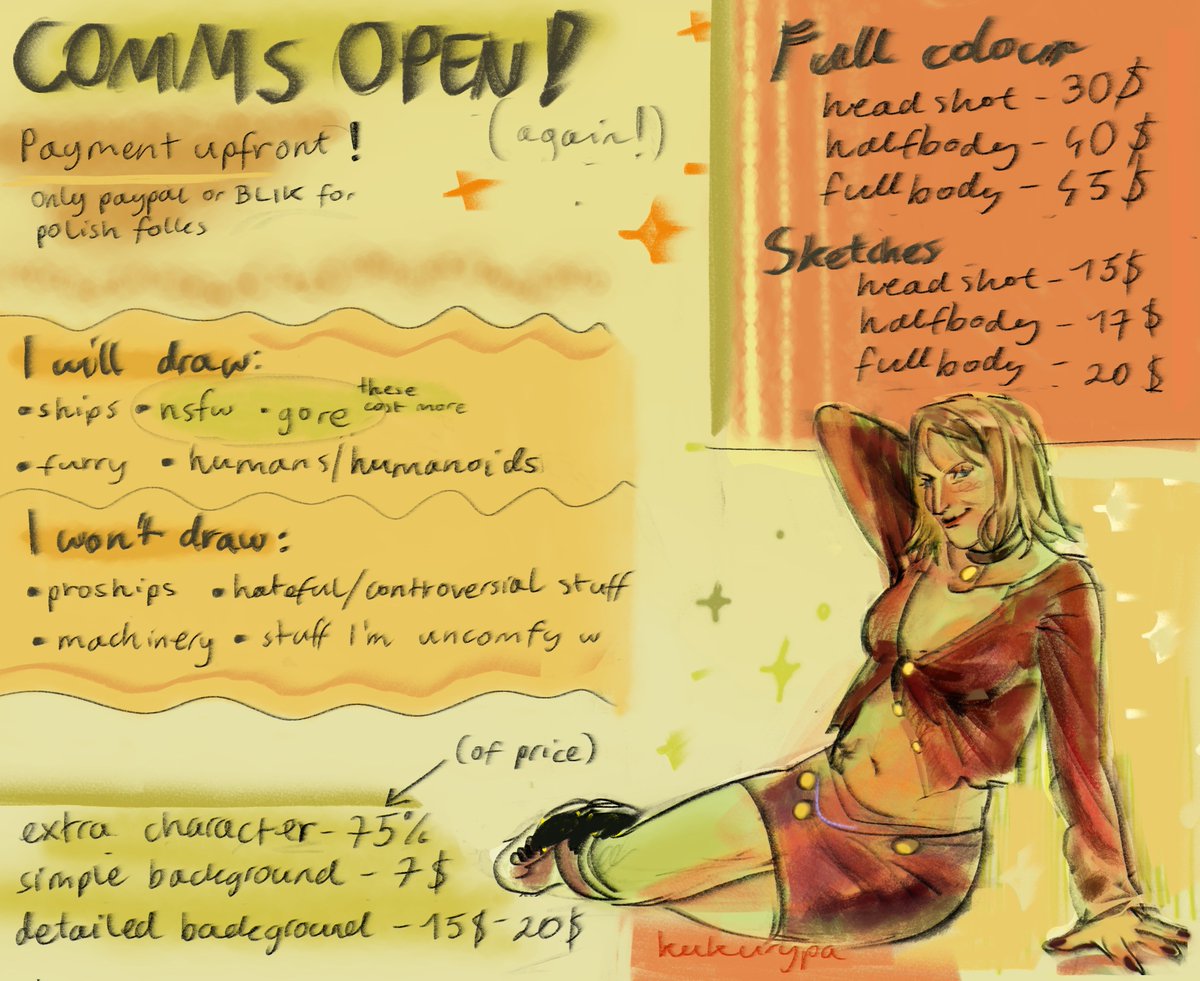 COMMS OPEN!
(again!)
Payment upfront!
Only paypal or BLIK for
polish folks
I will draw:
• ships • nsfw • gore these
cost more
• furry • humans/humanoids
I won't draw:
• proships • hateful/controversial stuff
• machinery • stuff I'm uncomfy w
(of price)
extra character - 75%
simple background - 7$
detailed background - 15$-20$
Full colour
headshot - 30$
halfbody - 40$
fullbody - 45$
Sketches
headshot - 15$
halfbody - 17$
fullbody - 20$
kukurypa